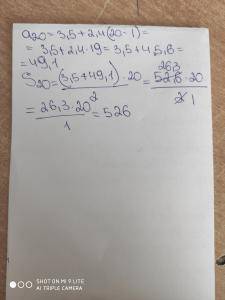 a20 = 3,5 + 2,4(20 - 1) =
= 3,5 + 2,4 · 19 = 3,5 + 45,6 =
= 49,1
S20 = (3,5 + 49,1) · 20 = 26,3 52,6 · 20
2 1
= 26,3 · 20 2 = 526
1
SHOT ON MI 9 LITE
AI TRIPLE CAMERA